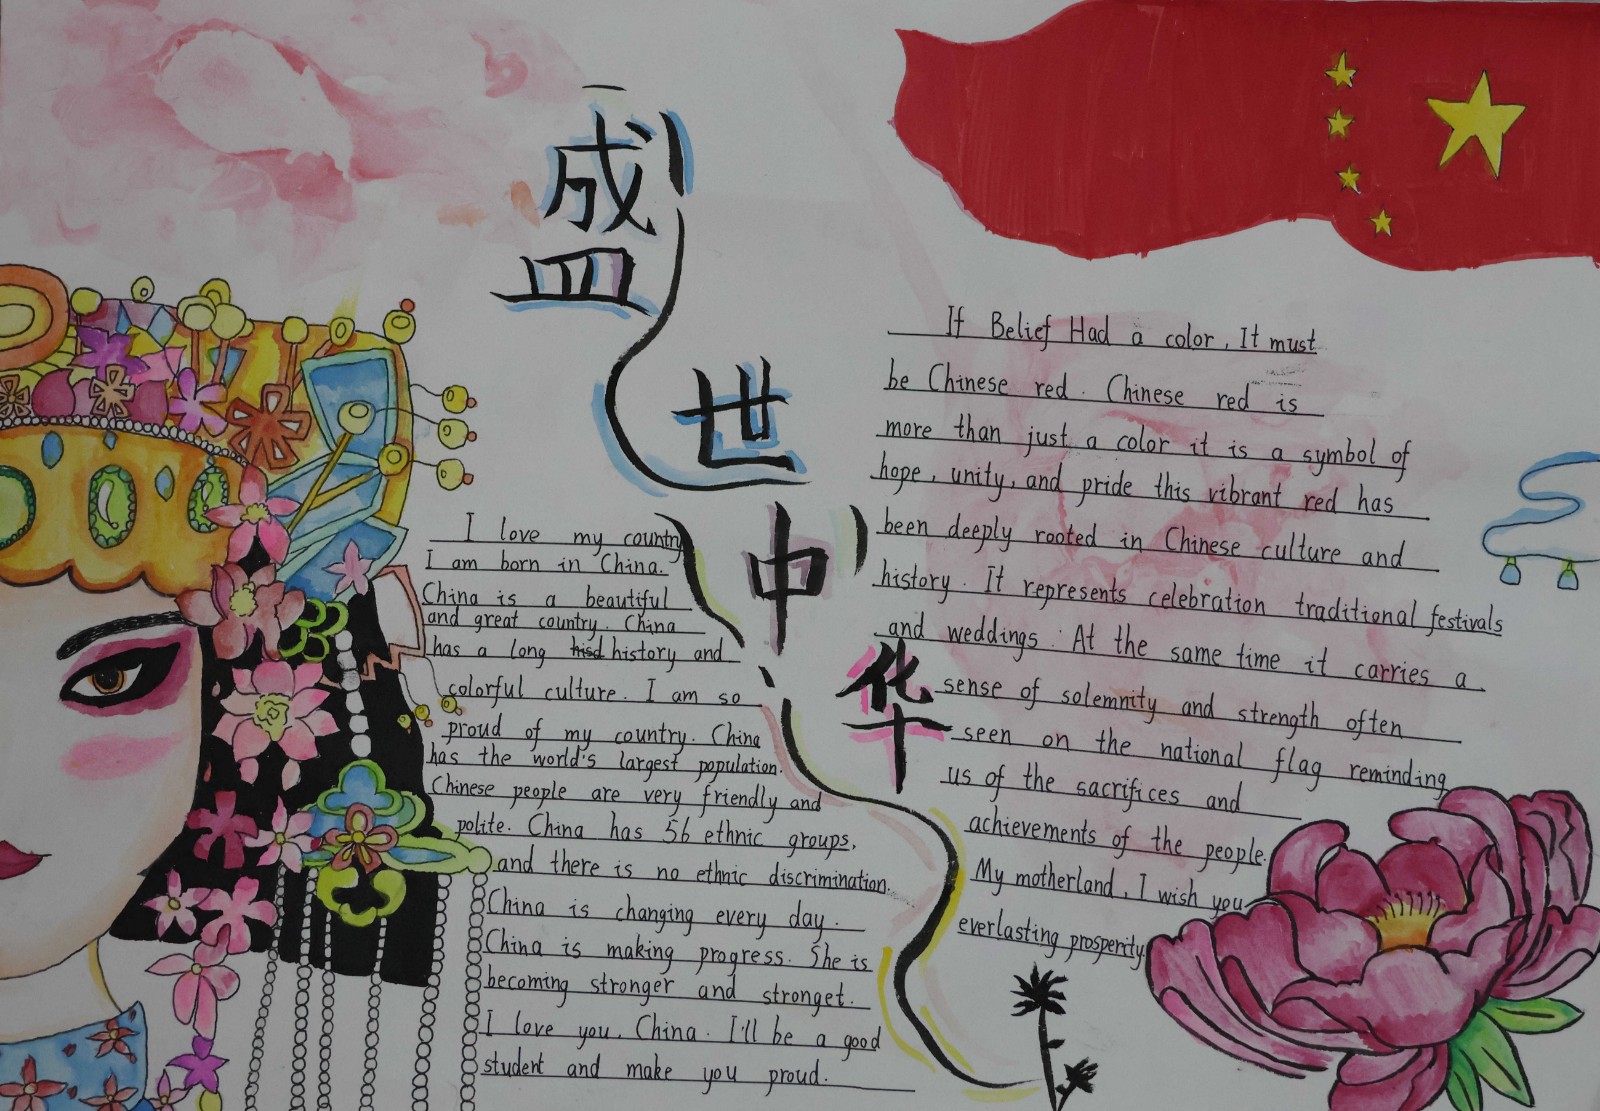 盛世中华
I love my country
I am born in China.
China is a beautiful
and great country. China
has a long hisd history and
colorful culture. I am so
proud of my country. China
has the world's largest population.
Chinese people are very friendly and
polite. China has 56 ethnic groups,
and there is no ethnic discrimination.
China is changing every day.
China is making progress. She is
becoming stronger and stronget.
I love you, China. I'll be a good
student and make you proud.
If Belief Had a color, It must
be Chinese red. Chinese red is
more than just a color it is a symbol of
hope, unity, and pride this vibrant red has
been deeply rooted in Chinese culture and
history. It represents celebration traditional festivals
and weddings. At the same time it carries a
sense of solemnity and strength often
seen on the national flag reminding
us of the sacrifices and
achievements of the people.
My motherland, I wish you
everlasting prosperity.